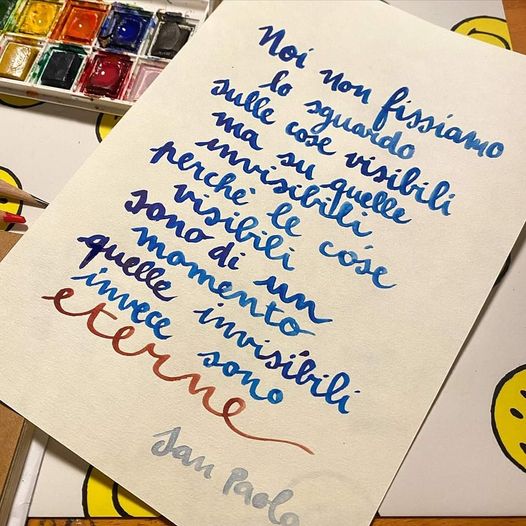 Noi non fissiamo
lo sguardo
sulle cose visibili
ma su quelle
invisibili
perché le cose
visibili
sono di un
momento
quelle invisibili
invece sono
eterne
San Paolo